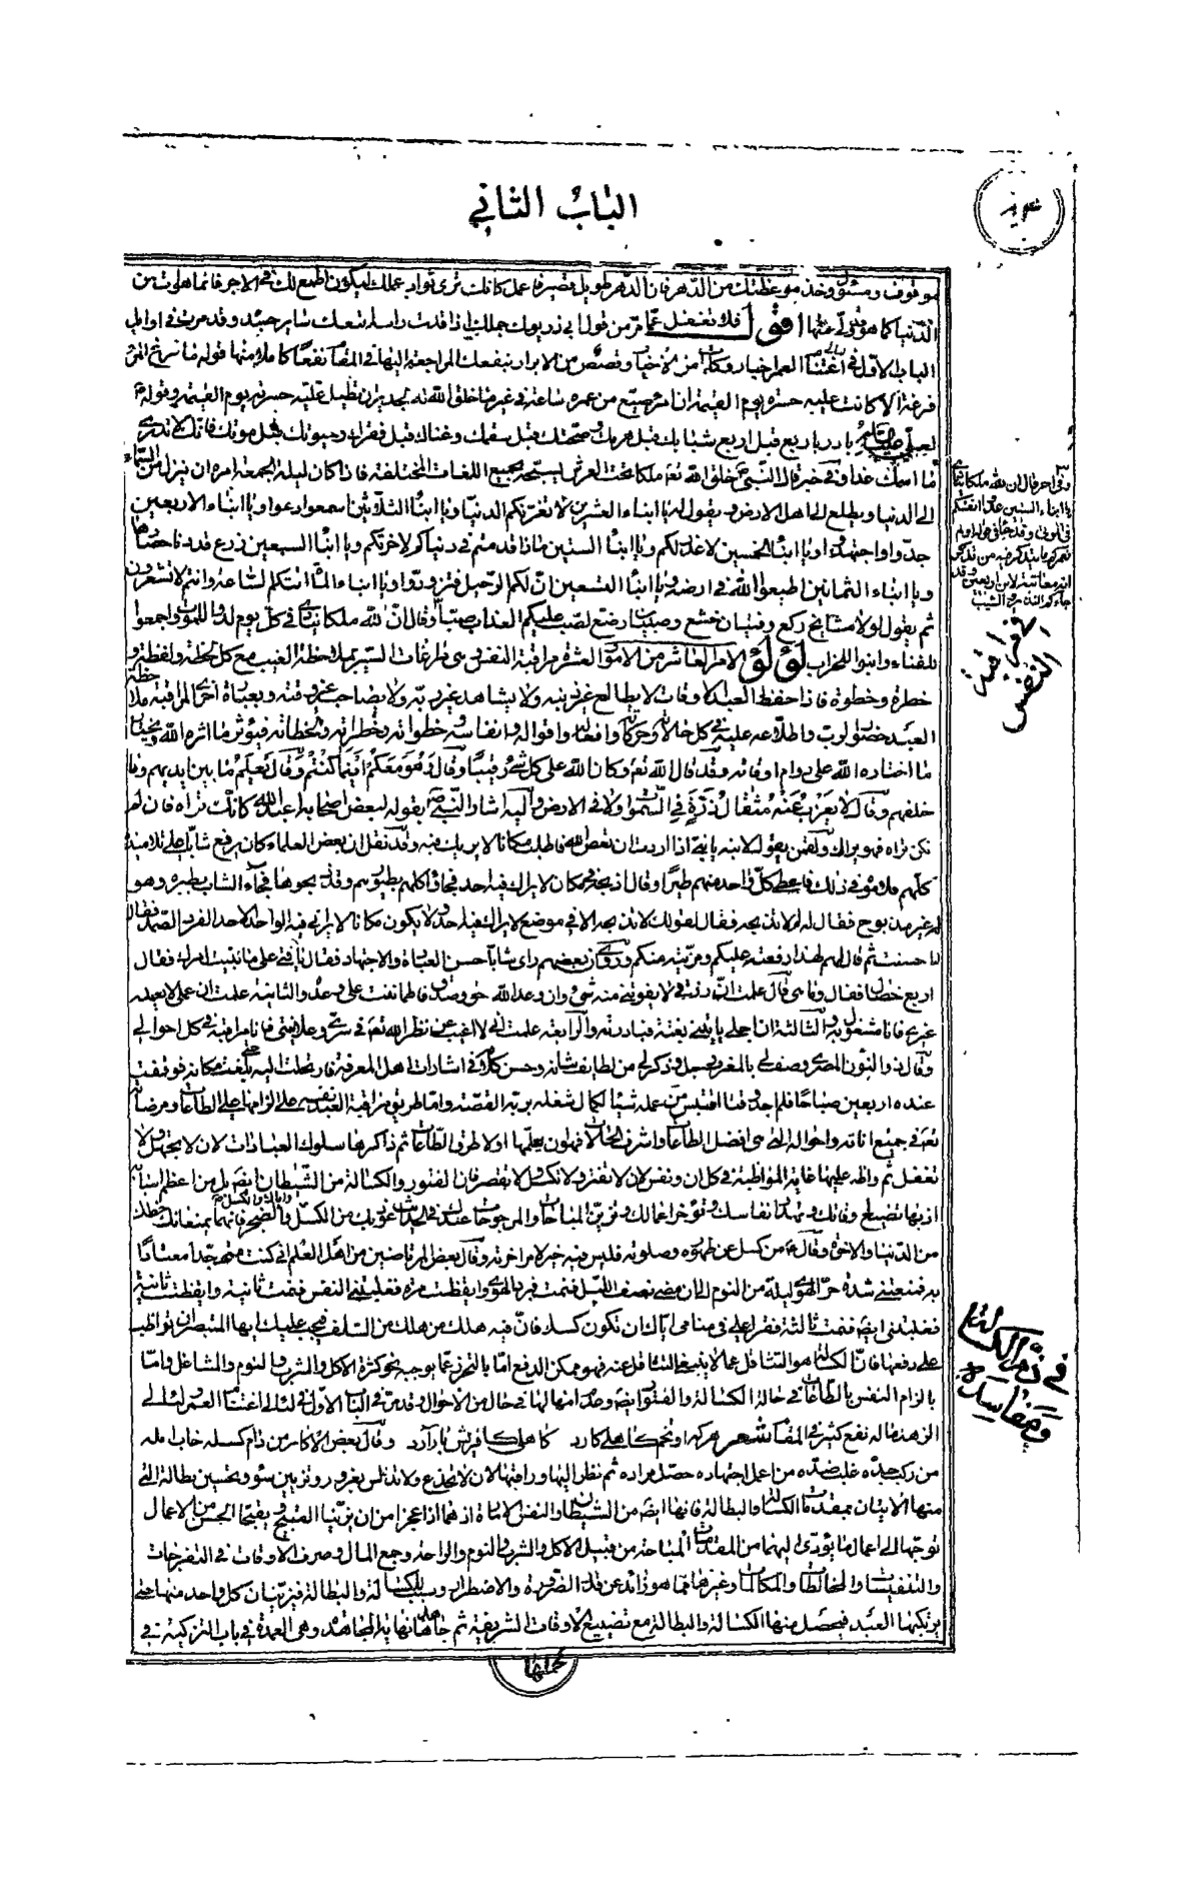 الباب الثاني
موقوف ومسئول وخذ موعظتك من الدهر فان الدهر طويل قصير فاعمل كانك ترى ثواب عملك ليكون اطمع لك في الاجر فانما هو ات من
الدنيا كما هو قد ولى عنها اقول فلا تغفل عما مر من قول ابي ذر يومك جملك اذا قدت راسه اتبعك ساير جسده وقد مرت في اوايل
الباب الاول في اغتنام العمر اخبار وكلمات من الاخيار وقصص من الابرار ينفعك المراجعة اليها في المقام نفعا كاملا منها قوله ما من
فرغة الا كانت عليه حسرة يوم القيمة ان امرء ضيع من عمره ساعة في غير ما خلق الله له لجدير ان تطيل عليه حسرته يوم القيمة وقوله
لعلي بادر باربع قبل اربع شبابك قبل هرمك وصحتك قبل سقمك وغناك قبل فقرك وحيوتك قبل موتك فانك لا تدري
ما اسمك غدا وفي خبر قال النبي خلق الله تعالى ملكا تحت العرش يسبحه بجميع اللغات المختلفة فاذا كان ليلة الجمعة امره ان ينزل من السماء
الى الدنيا ويطلع الى اهل الارض ويقول يا ابناء العشرين لا تغرنكم الدنيا ويا ابناء الثلاثين اسمعوا وعوا ويا ابناء الاربعين
جدوا واجتهدوا ويا ابناء الخمسين لا عذر لكم ويا ابناء الستين ماذا قدمتم في دنياكم لاخرتكم ويا ابناء السبعين زرع قد دنا حصادها
ويا ابناء الثمانين اطيعوا الله في ارضه ويا ابناء التسعين ان لكم الرحيل فتزودوا ويا ابناء المائة اتتكم الساعة وانتم لا تشعرون
ثم يقول لولا مشايخ ركع وفتيان خشع وصبيان رضع لصب عليكم العذاب صبا وقال ان لله ملكا ينادي في كل يوم لدوا للموت واجمعوا
للفناء وابنوا للخراب لؤلؤ الامر العاشر من الامور العشرة مراقبة النفس وهي مراعات السير بملاحظة الغيب مع كل لحظة ولفظة و
خطرة وخطوة فاذا حفظ العبد الاوقات لا يطالع غير دينه ولا يشاهد غير ربه ولا يصاحب غير وقته وبعبارة اخرى المراقبة ملاحظة
العبد حضور الرب واطلاعه عليه في كل حالاته وحركاته وافعاله واقواله وانفاسه وخطواته وخطراته ولحظاته فيؤثر ما اثره الله ويختار
ما اختاره الله على دوام اوقاته وقد قال الله تعالى وكان الله على كل شئ رقيبا وقال وهو معكم اينما كنتم وقال يعلم ما بين ايديهم وما
خلفهم وقال لا يعزب عنه مثقال ذرة في السموات ولا في الارض واليه اشار النبي بقوله لبعض اصحابه اعبد الله كانك تراه فان لم
تكن تراه فهو يراك ولقمن بقوله لابنه يا بني اذا اردت ان تعصي الله فاطلب مكانا لا يريك فيه وقد نقل ان بعض العلماء كان يرفع شابا على تلاميذه
كلهم فلاموه في ذلك فاعطى كل واحد منهم طيرا وقال اذبحه في مكان لا يراك فيه احد فجاؤا كلهم بطيورهم وقد ذبحوها فجاء الشاب بطيره وهو
غير مذبوح فقال له لم لا تذبحه فقال لقولك لا تذبحه الا في موضع لا يراك فيه احد ولا يكون مكانا لا يراني فيه الواحد الاحد الفرد الصمد فقال
احسنت ثم قال لهم لهذا رفعته عليكم وميزته منكم وروي ان بعضهم راى شابا حسن العبادة والاجتهاد فقال يا فتى على ما بنيت امرك فقال
اربع خصال فقال وما هي قال علمت ان رزقي لا يفوتني منه شئ وان وعد الله حق وصدق فاطماننت على وعده والثانية علمت ان عملي لا يعمله
غيري فانا مشغول به والثالثة ان اجلي ياتيني بغتة فبادرته والرابعة علمت اني لا اغيب عن نظر الله تعالى في سري وعلانيتي فانا مراقبة في كل احوالي
وقال ذو النون المصري وصف لي بالمغرب رجل وذكر لي من لطايف شانه وحسن كلامه في اشارات اهل المعرفة فارتحلت اليه حتى بلغت مكانه فوقفت
عنده اربعين صباحا فلم اجد وقتا اقتبس من عمله شيئا لكمال شغله بربه القصة واما طريق مراقبة العبد نفسه على الزامها على الطاعات ومرضاته
تعالى في جميع اناته واحواله التي هي افضل الطاعات واشرف الحالات فهو ان يعلمها اولا طرق الطاعات ثم ذاكرها سلوك العبادات لان لا تجهل ولا
تغفل ثم واظب عليها غاية المواظبة في كل ان ونفس لان لا تفتر ولا تكسل ولا تقصر فان الفتور والكسالة من الشيطان ايضا بل من اعظم اسبابه
اذ بها تضييع وقاتك وتهدر انفاسك وتؤخر اعمالك وتزين المباحات والمرجوحات عندك وفي الحديث عن ابيك من الكسل والضجر فانهما يمنعانك حظك
من الدنيا والاخرة وقال من كسل عن طهوره وصلوته فليس فيه خير لامر اخرته وقال بعض المرتاضين من اهل العلم اني كنت متهجدا معتادا
به فمنعتني شدة حر الهوى ليلة من النوم الى ان مضى نصف الليل فنمت فبرد الهوى وايقظت مرة فغلبتني النفس فنمت ثانية وايقظت ثانية
فغلبتني ايضا فنمت ثالثة فقرا علي في منامي اياك ان تكون كسلا فان فيه هلك من هلك من السلف فيجب عليك ايها المتبصر ان تواظب
على دفعها فان الكسالة هو التثاقل عما لا ينبغي التثاقل عنه فهو ممكن الدفع اما بالتحرز عما يوجبه نحو كثرة الاكل والشرب والنوم والمشاغل واما
بالزام النفس بالطاعات في حالة الكسالة والفتور ايضا وعدم امهالها في حال من الاحوال وقد مر في الباب الاول في لئالي اغتنام العمر لئالي
الزهد ما له نفع كثير في المقام شعر هركه او تخم كاهلي كارد كاهلي كافريش بار آرد وقال بعض الاكابر من دام كسله خاب امله
من ركب جده غلب ضده من اعمل اجتهاده حصل مراده ثم نظر اليها وراقبها لان لا تخدع ولا تدلس بغرور وتزيين سوء وتحسين بطالة التي
منها الاتيان بمقدمات الكسالة والبطالة فانها ايضا من الشيطان والنفس الامارة اذ هما اذا عجزا من ان يزينا القبيح ويقبحا الحسن من الاعمال
توجها الى اعمال ما يؤدي اليهما من المقدمات المباحة من قبيل الاكل والشرب والنوم والراحة وجمع المال وصرف الاوقات في التفرجات
والتفتيشات والمخالطات والمكالمات وغيرها مما هو زائد عن قدر الضرورة والاضطرار وسبب للكسالة والبطالة فيزينان كل واحد منها حتى
يرتكبها العبد فيحصل منها الكسالة والبطالة مع تضييع الاوقات الشريفة ثم جاهدها نهاية المجاهدة وهي العمدة في باب التزكية في
تحملها
وفي اخر قال ان لله ملكا ينادي
يا ابناء الستين عدوا انفسكم
في الموتى
في مراقبة
النفس
في ذم الكسالة
ومفاسده